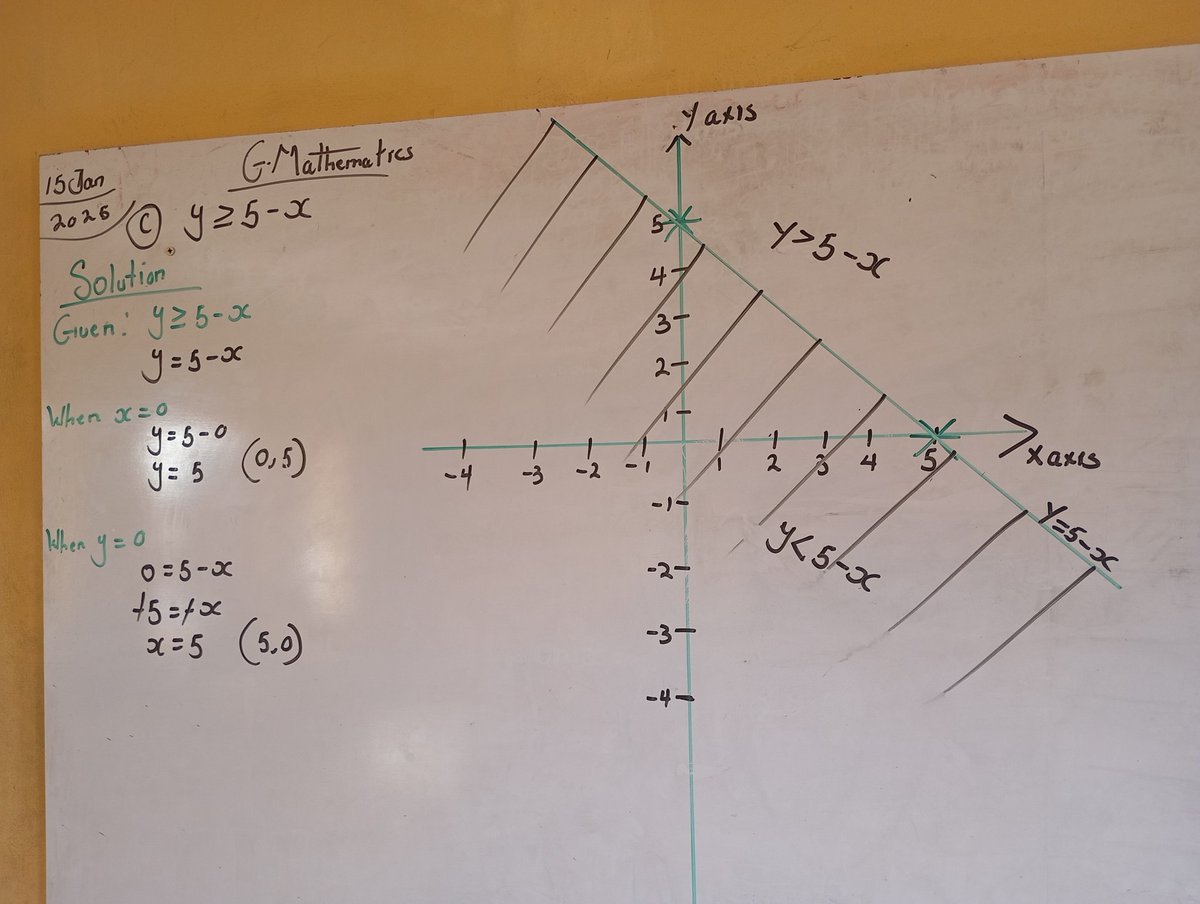 G. Mathematics
15 Jan
2026
(c) y ≥ 5 - x
Solution
Given: y ≥ 5 - x
y = 5 - x
When x = 0
y = 5 - 0
y = 5 (0,5)
When y = 0
0 = 5 - x
+5 = +x
x = 5 (5,0)
y axis
5
4
3
2
1
-4 -3 -2 -1 1 2 3 4 5
x axis
-1
-2
-3
-4
y > 5 - x
y < 5 - x
y = 5 - x